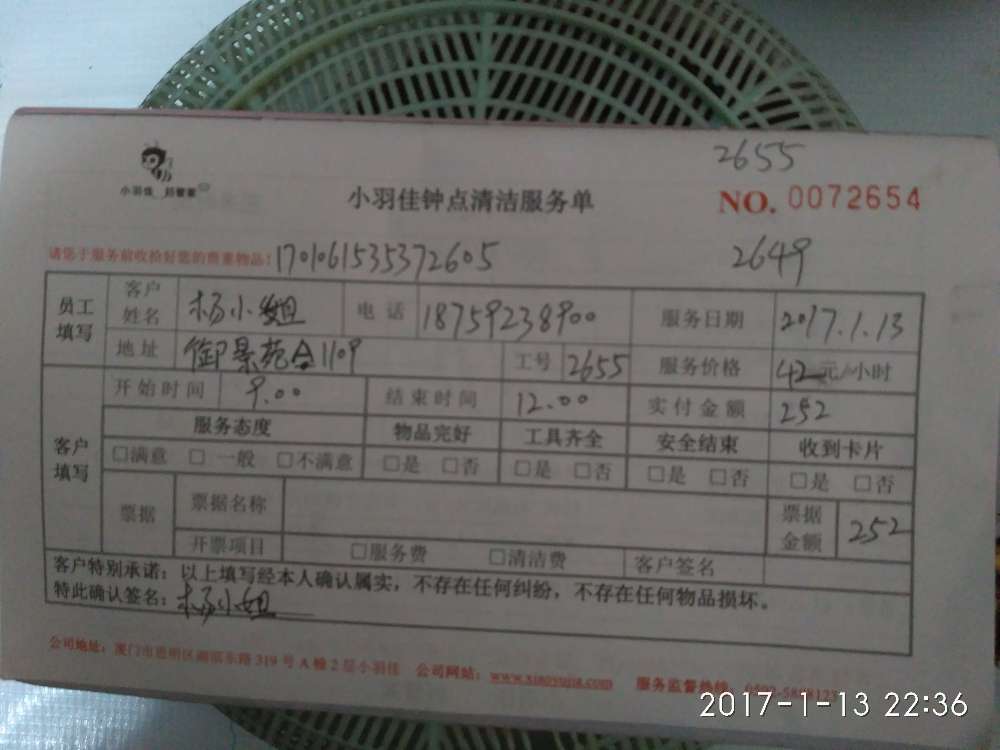 2655
小羽佳
小羽佳钟点清洁服务单
NO. 0072654
请您于服务前收拾好您的贵重物品! 1701061535372605
2649
员工填写
客户姓名 杨小姐 电话 18759238900 服务日期 2017.1.13
地址 御景苑 1109 工号 2655 服务价格 42元/小时
客户填写
开始时间 9.00 结束时间 12.00 实付金额 252
服务态度 物品完好 工具齐全 安全结束 收到卡片
□满意 □一般 □不满意 □是 □否 □是 □否 □是 □否 □是 □否
票据 票据名称 票据金额 252
开票项目 □服务费 □清洁费 客户签名
客户特别承诺：以上填写经本人确认属实，不存在任何纠纷，不存在任何物品损坏。
特此确认签名：杨小姐
公司地址：厦门市思明区湖滨东路319号A幢2层小羽佳 公司网站： 服务监督热线：
2017-1-13 22:36